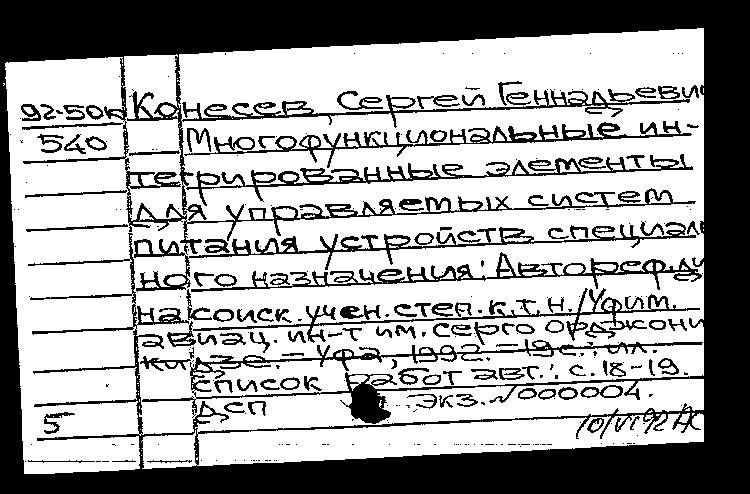 92-50к Конесев, Сергей Геннадьевич
540 Многофункциональные ин-
тегрированные элементы
для управляемых систем
питания устройств специаль
ного назначения: Автореф. ди
на соиск. учен. степ. к.т.н./Уфим.
авиац. ин-т им. серго орджони
кидзе. – Уфа, 1992. – 19 с.: ил.
список работ авт.: с. 18-19.
дсп Экз. №000004.
5 10/VI 92